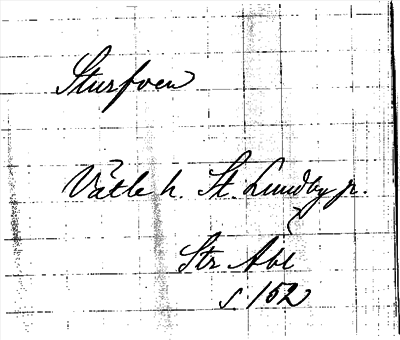 Sturfven
Vätle h. St. Lundby p.
Str Abl
s. 152